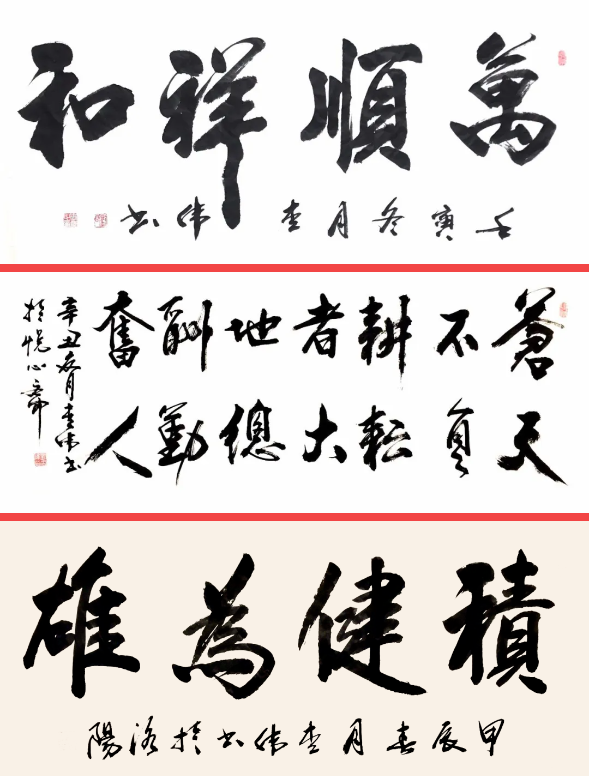 萬順祥和
壬寅冬月李伟书
蒼天
不負
耕耘
者大
地總
酬勤
奮人
辛丑月李伟书
於悦心斋
積健為雄
甲辰春月李伟书於洛陽